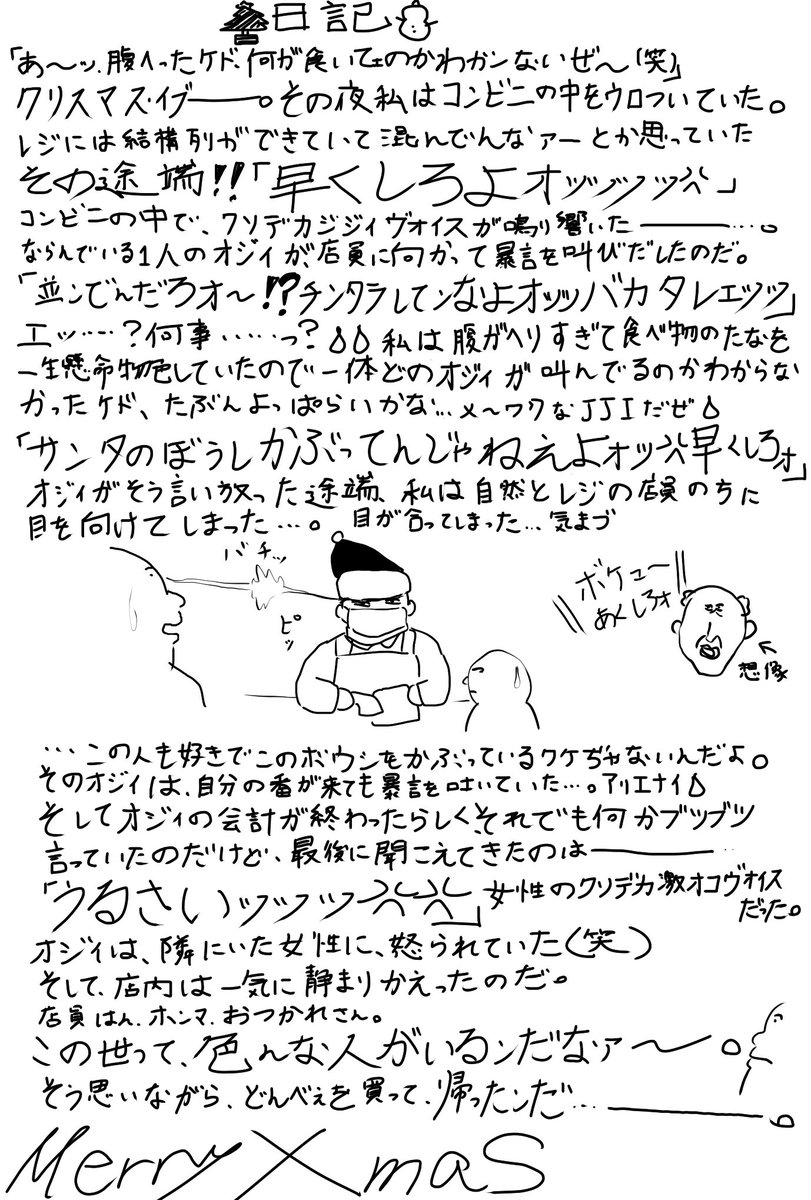 日記
「あ〜ッ、腹へったケド、何が食いてェのかわかンないぜ〜(笑)」
クリスマス・イブ――。その夜私はコンビニの中をウロついていた。
レジには結構列ができていて混んでんなァーとか思っていた
その途端!!「早くしろよオッッッッ」
コンビニの中で、クソデカジジィヴォイスが鳴り響いた――…。
ならんでいる1人のオジィが、店員に向かって暴言を叫びだしたのだ。
「並ンでんだろオ〜!?チンタラしてンなよオッッバカタレエッッ」
エッ…‥?何事……っ?私は腹がヘリすぎて食べ物のたなを
一生懸命物色していたので一体どのオジィが叫んでるのかわからな
かったケド、たぶんよっぱらいかな…メ〜ワクなJJIだぜ
「サンタのぼうしかぶってんじゃねえよオッ早くしろォ」
オジィがそう言い放った途端、私は自然とレジの店員のちに
目を向けてしまった…。目が合ってしまった…気まづ
バチッ
ピッ
ボケェー
あくしろォ
想像
…この人も好きでこのボウシをかぶっているワケぢゃないんだよ。
そのオジィは、自分の番が来ても暴言を吐いていた…。アリエナイ
そしてオジィの会計が終わったらしく、それでも何かブツブツ
言っていたのだけど、最後に聞こえてきたのは――…
「うるさいッッッッ」女性のクソデカ激オコヴォイス
だった。
オジィは、隣にいた女性に、怒られていた(笑)
そして、店内は一気に静まりかえったのだ。
店員はん、ホンマ、おつかれさん。
この世って、色んな人がいるンだなァ〜。
そう思いながら、どんべぇを買って、帰ったンだ…――。
Merry Xmas